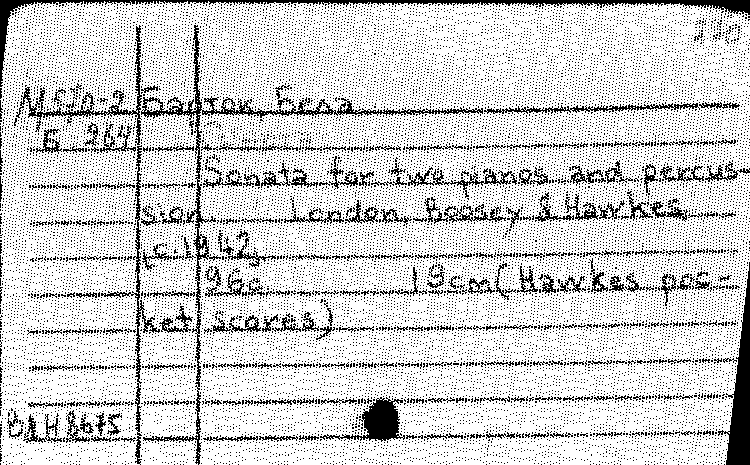 Барток, Бела
Б 264
Sonata for two pianos and percus-
sion. London, Boosey & Hawkes
[c.1942]
96c. 19cm (Hawkes poc-
ket scores)
B&H 8675